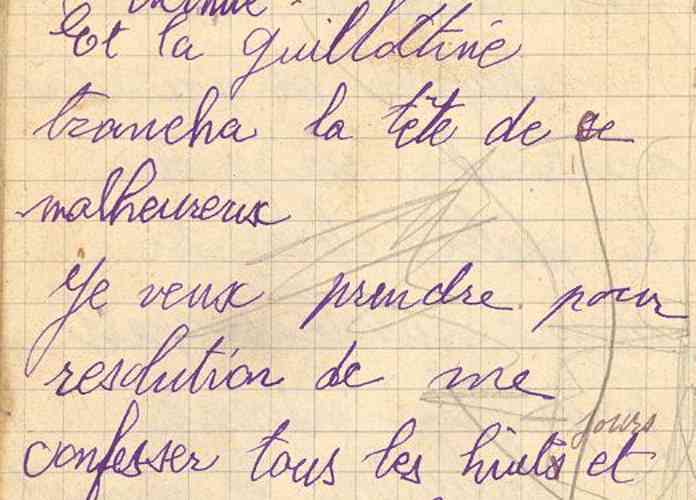 Et la guillottine
trancha la tête de se
malheureux
Je veux prendre pour
resolution de me
jours
confesser tous les huits et